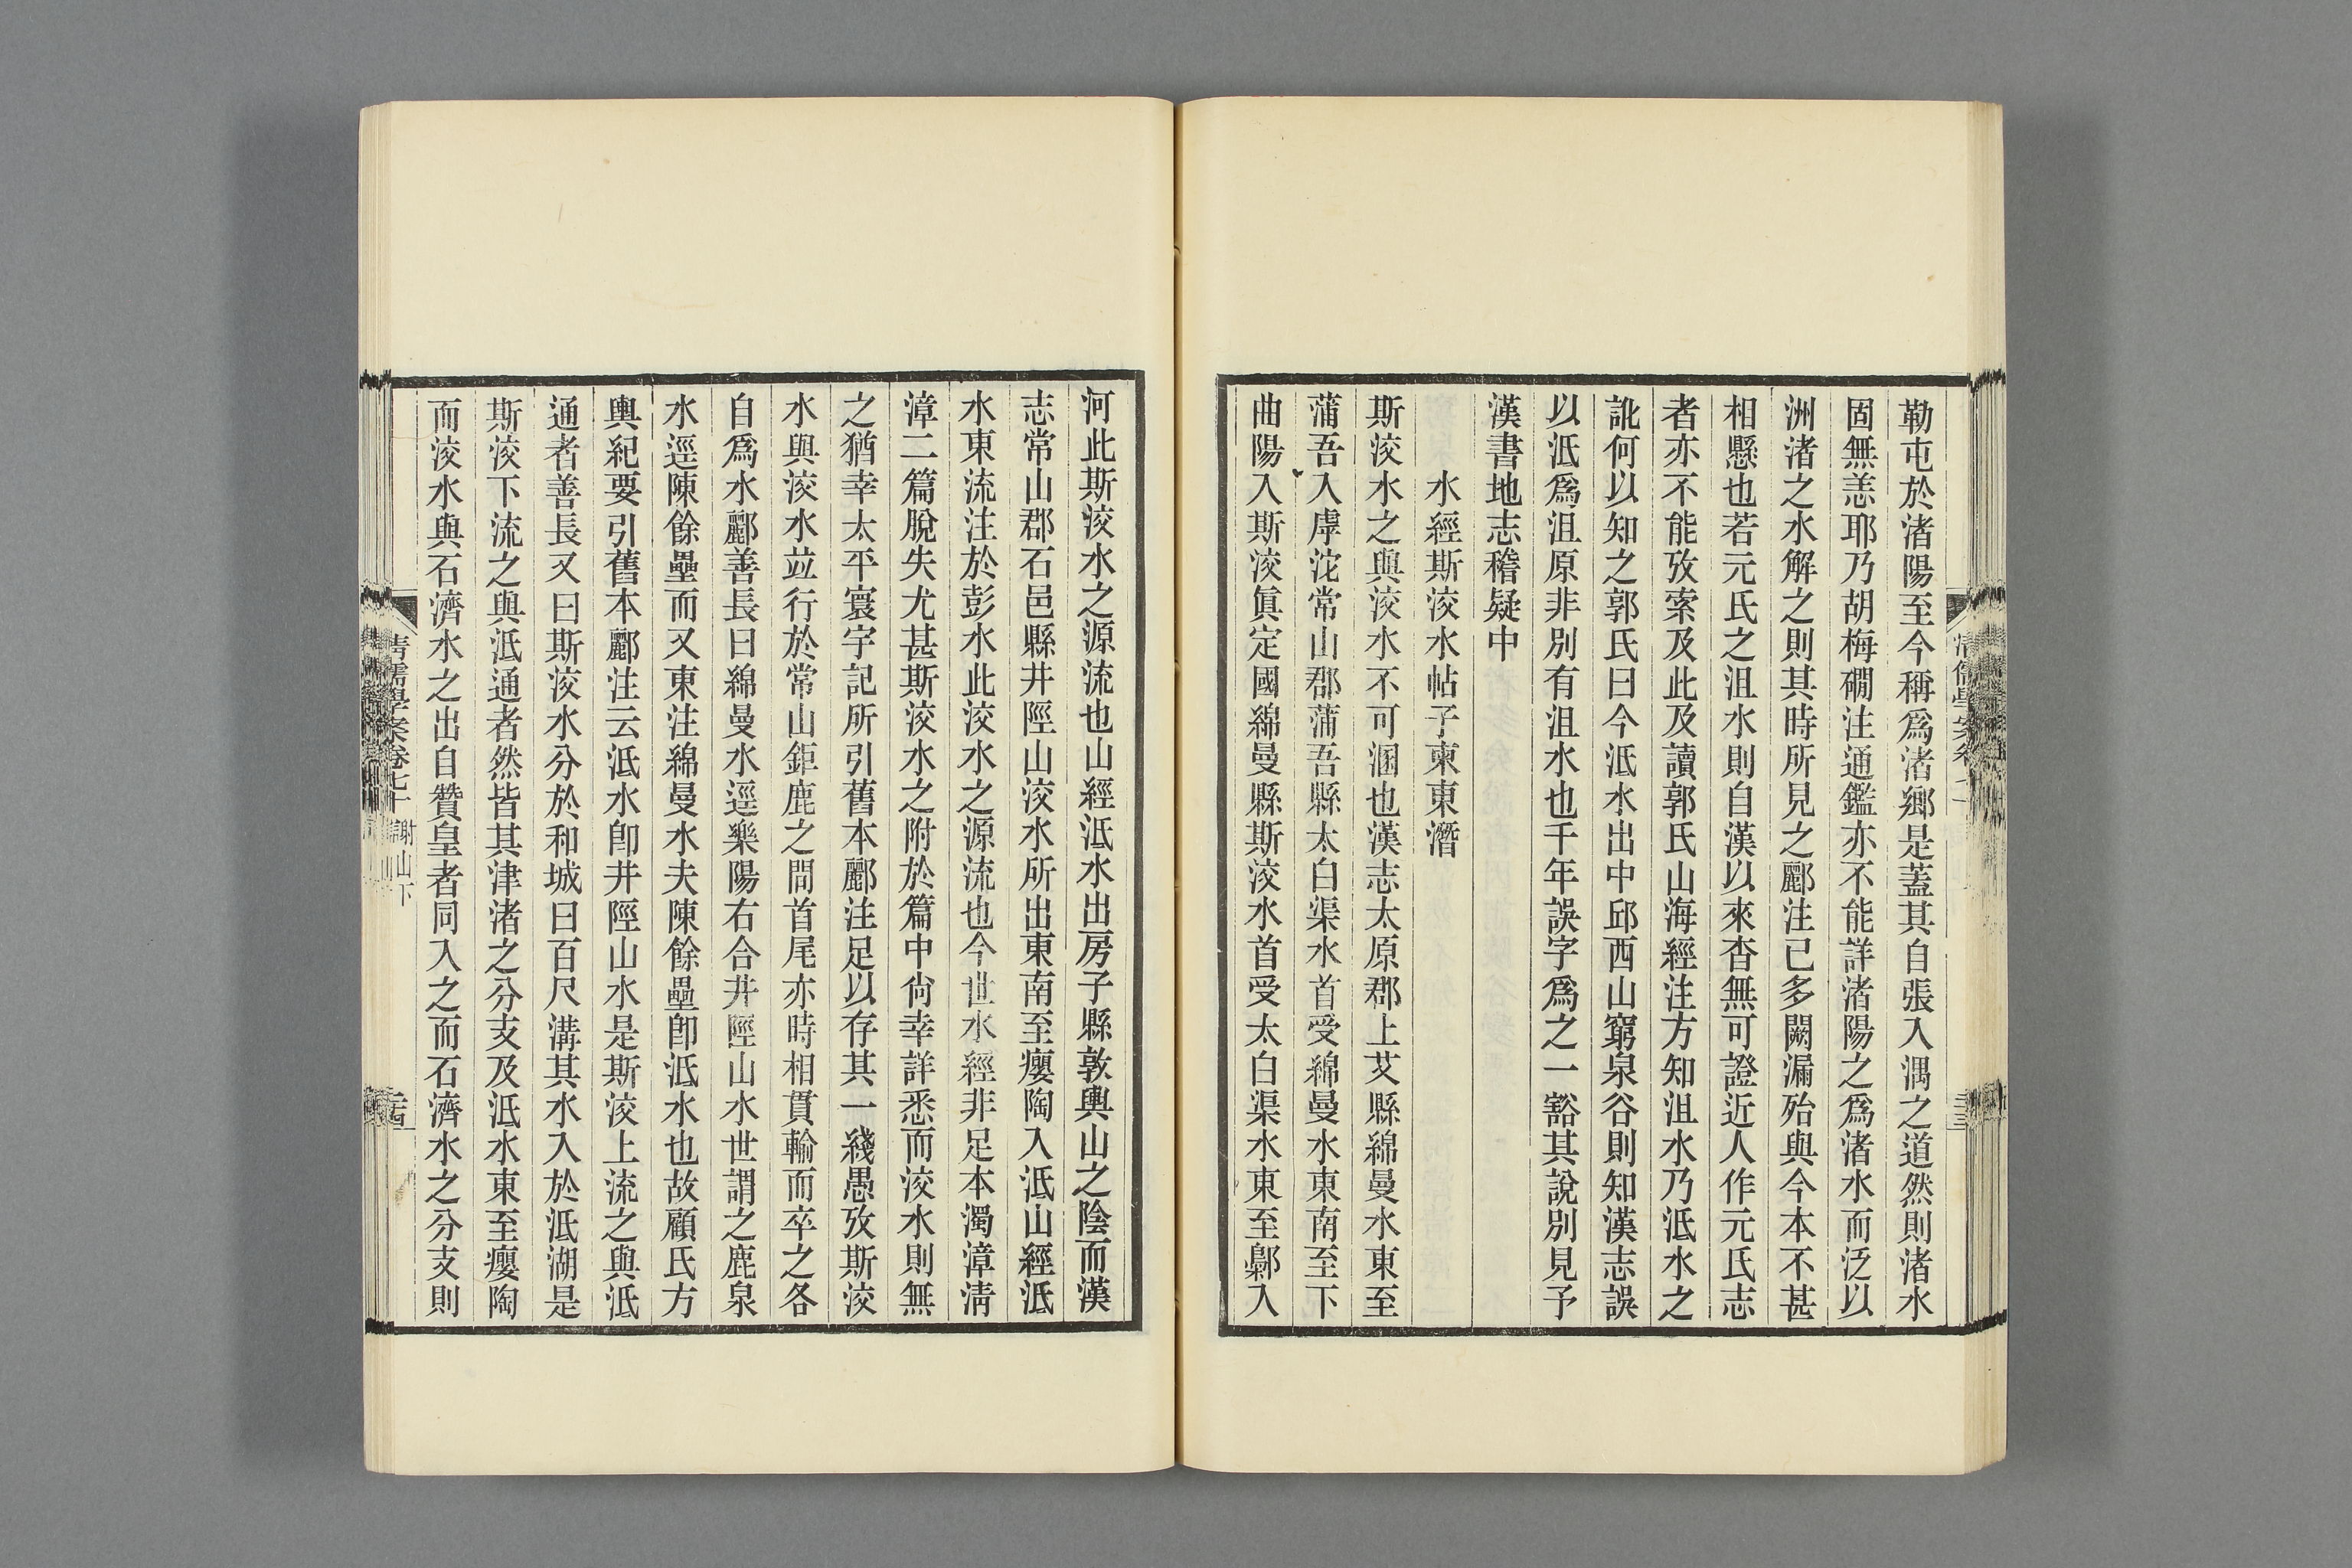 勒屯於渚陽至今稱爲渚鄉是蓋其自張入湡之道然則渚水
固無恙耶乃胡梅磵注通鑑亦不能詳渚陽之爲渚水而泛以
洲渚之水解之則其時所見之酈注已多闕漏殆與今本不甚
相懸也若元氏之沮水則自漢以來杳無可證近人作元氏志
者亦不能攷索及此及讀郭氏山海經注方知沮水乃泜水之
訛何以知之郭氏曰今泜水出中邱西山窮泉谷則知漢志誤
以泜爲沮原非別有沮水也千年誤字爲之一豁其說別見予
漢書地志稽疑中
水經斯洨水帖子柬東潛
斯洨水之與洨水不可溷也漢志太原郡上艾縣綿曼水東至
蒲吾入虖沱常山郡蒲吾縣太白渠水首受綿曼水東南至下
曲陽入斯洨眞定國綿曼縣斯洨水首受太白渠水東至鄡入
河此斯洨水之源流也山經泜水出房子縣敦輿山之陰而漢
志常山郡石邑縣井陘山洨水所出東南至癭陶入泜山經泜
水東流注於彭水此洨水之源流也今世水經非足本濁漳淸
漳二篇脫失尤甚斯洨水之附於篇中尙幸詳悉而洨水則無
之猶幸太平寰宇記所引舊本酈注足以存其一綫愚攷斯洨
水與洨水竝行於常山鉅鹿之間首尾亦時相貫輸而卒之各
自爲水酈善長曰綿曼水逕樂陽右合井陘山水世謂之鹿泉
水逕陳餘壘而又東注綿曼水夫陳餘壘卽泜水也故顧氏方
輿紀要引舊本酈注云泜水卽井陘山水是斯洨上流之與泜
通者善長又曰斯洨水分於和城曰百尺溝其水入於泜湖是
斯洨下流之與泜通者然皆其津渚之分支及泜水東至癭陶
而洨水與石濟水之出自贊皇者同入之而石濟水之分支則
清儒學案卷七十 謝山下